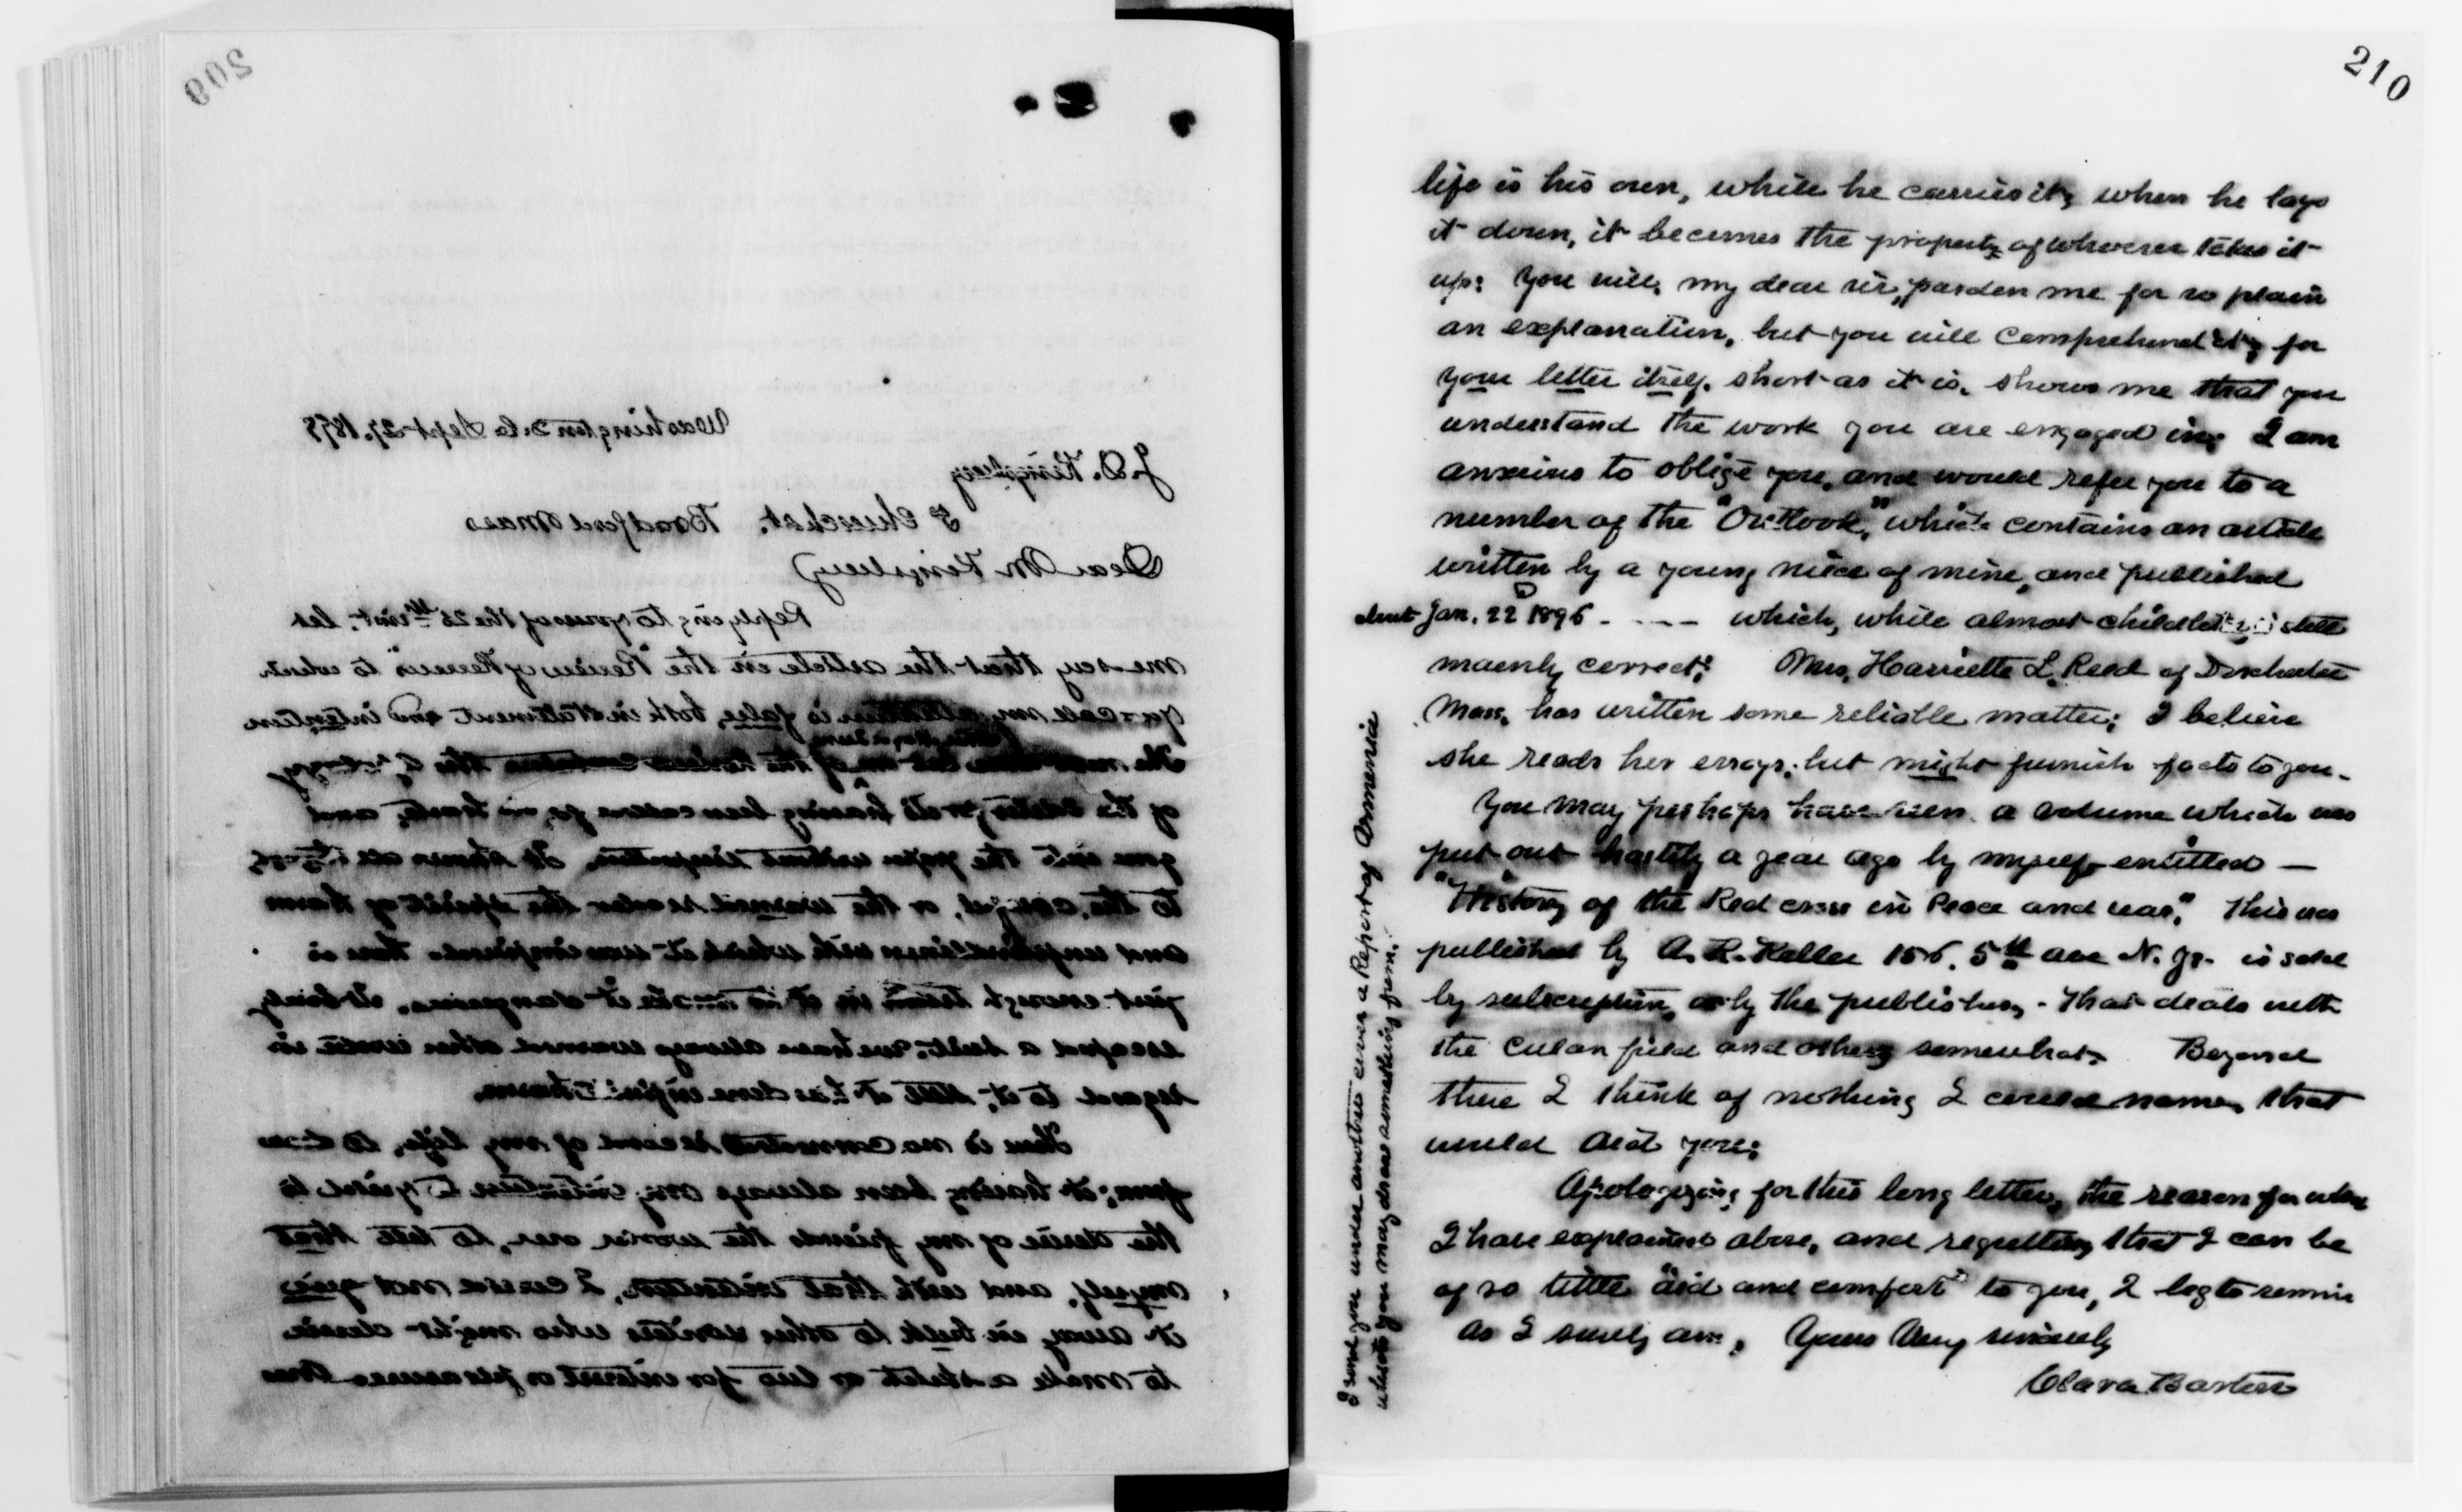 209
Washington D.C. Sept. 27. 1899
J. D. Kingsbury
Bradford Mass
Dear Mr Kingsbury
Replying to yours of the 25th inst. let
me say that the article in the "Review of Reviews" to which
you call my attention is false, both in statement and intention
of the editor, or its having been
gone into the paper without inspection. It shows all
to the, or the reader the spirit of harm
and unfriendliness with which it was inspired. there is
just enough truth in it to make it dangerous. It barely
escaped a suit. we have always warned other in
regard to it, still it has done harm.
There is no connected record of my life, to
from; it having been always my intention to yield to
the desire of my friends the world over, to tell that
myself, and with that intention, I could not give
it away in bulk to other writers who might desire
to make a sketch or two for interest or pleasure. One's
210
life is his own, while he carries it, when he lays
it down, it becomes the property of whoever takes it
up: You will, my dear sir, pardon me for so plain
an explanation, but you will comprehend it, for
your letter itself, short as it is, shows me that you
understand the work you are engaged in; I am
anxious to oblige you, and would refer you to a
number of the "Outlook," which contains an article
written by a young niece of mine, and published
about Jan. 22 1896 - - - - which, while almost is still
mainly correct; Mrs. Harriette L. Reed of Dorchester
Mass. has written some reliable matter; I believe
she reads her essays; but might furnish facts to you.
You may perhaps have seen a volume which was
put out hastily a year ago by myself entitled —
"History of the Red cross in Peace and war," This was
published by A. R. Keller 156. 5th ave N. Y. is sold
by subscription, or by the publisher, - that deals with
the Cuban field and others somewhat. Beyond
these I think of nothing I could name, that
would aid you;
Apologizing for this long letter, the reason for which
I have explained above, and regretting that I can be
of so little "aid and comfort" to you, I beg to remain
as I surely am, Yours Very sincerely
Clara Barton
I send you under another cover a Report of Armenia
which you may draw something from.